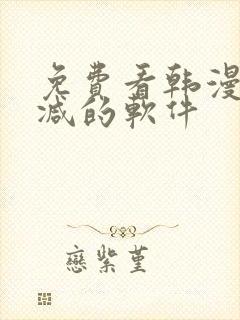 免費看韩漫
减的軟件
戀紫堇